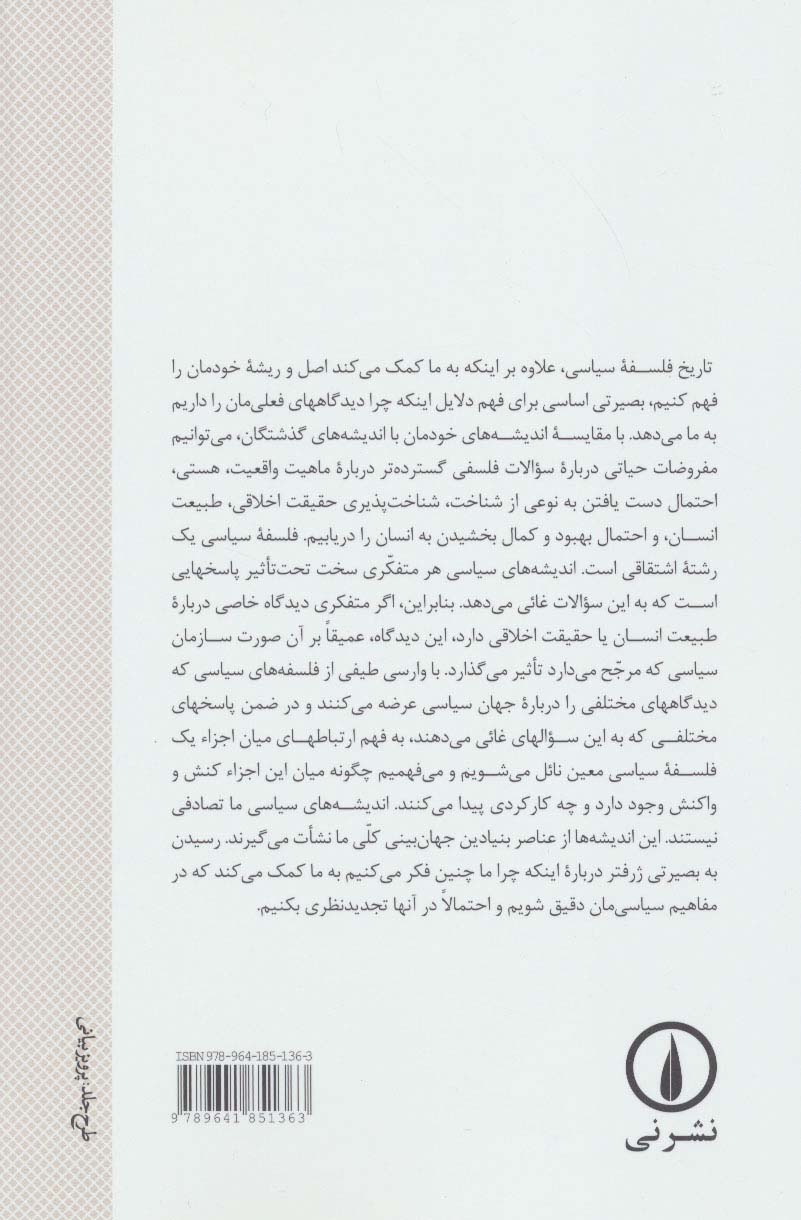 تاریخ فلسفهٔ سیاسی، علاوه بر اینکه به ما کمک می‌کند اصل و ریشهٔ خودمان را
فهم کنیم، بصیرتی اساسی برای فهم دلایل اینکه چرا دیدگاههای فعلی‌مان را داریم
به ما می‌دهد. با مقایسهٔ اندیشه‌های خودمان با اندیشه‌های گذشتگان، می‌توانیم
مفروضات حیاتی دربارهٔ سؤالات فلسفی گسترده‌تر دربارهٔ ماهیت واقعیت، هستی،
احتمال دست یافتن به نوعی از شناخت، شناخت‌پذیری حقیقت اخلاقی، طبیعت
انسان، و احتمال بهبود و کمال بخشیدن به انسان را دریابیم. فلسفهٔ سیاسی یک
رشتهٔ اشتقاقی است. اندیشه‌های سیاسی هر متفکّری سخت تحت‌تأثیر پاسخهایی
است که به این سؤالات غائی می‌دهد. بنابراین، اگر متفکری دیدگاه خاصی دربارهٔ
طبیعت انسان یا حقیقت اخلاقی دارد، این دیدگاه، عمیقاً بر آن صورت سازمان
سیاسی که مرجّح می‌دارد تأثیر می‌گذارد. با وارسی طیفی از فلسفه‌های سیاسی که
دیدگاههای مختلفی را دربارهٔ جهان سیاسی عرضه می‌کنند و در ضمن پاسخهای
مختلفی که به این سؤالهای غائی می‌دهند، به فهم ارتباطهای میان اجزاء یک
فلسفهٔ سیاسی معین نائل می‌شویم و می‌فهمیم چگونه میان این اجزاء کنش و
واکنش وجود دارد و چه کارکردی پیدا می‌کنند. اندیشه‌های سیاسی ما تصادفی
نیستند. این اندیشه‌ها از عناصر بنیادین جهان‌بینی کلّی ما نشأت می‌گیرند. رسیدن
به بصیرتی ژرفتر دربارهٔ اینکه چرا ما چنین فکر می‌کنیم به ما کمک می‌کند که در
مفاهیم سیاسی‌مان دقیق شویم و احتمالاً در آنها تجدیدنظری بکنیم.
طرح جلد: پرویز بیانی
ISBN 978-964-185-136-3
9 789641 851363
نشر نی